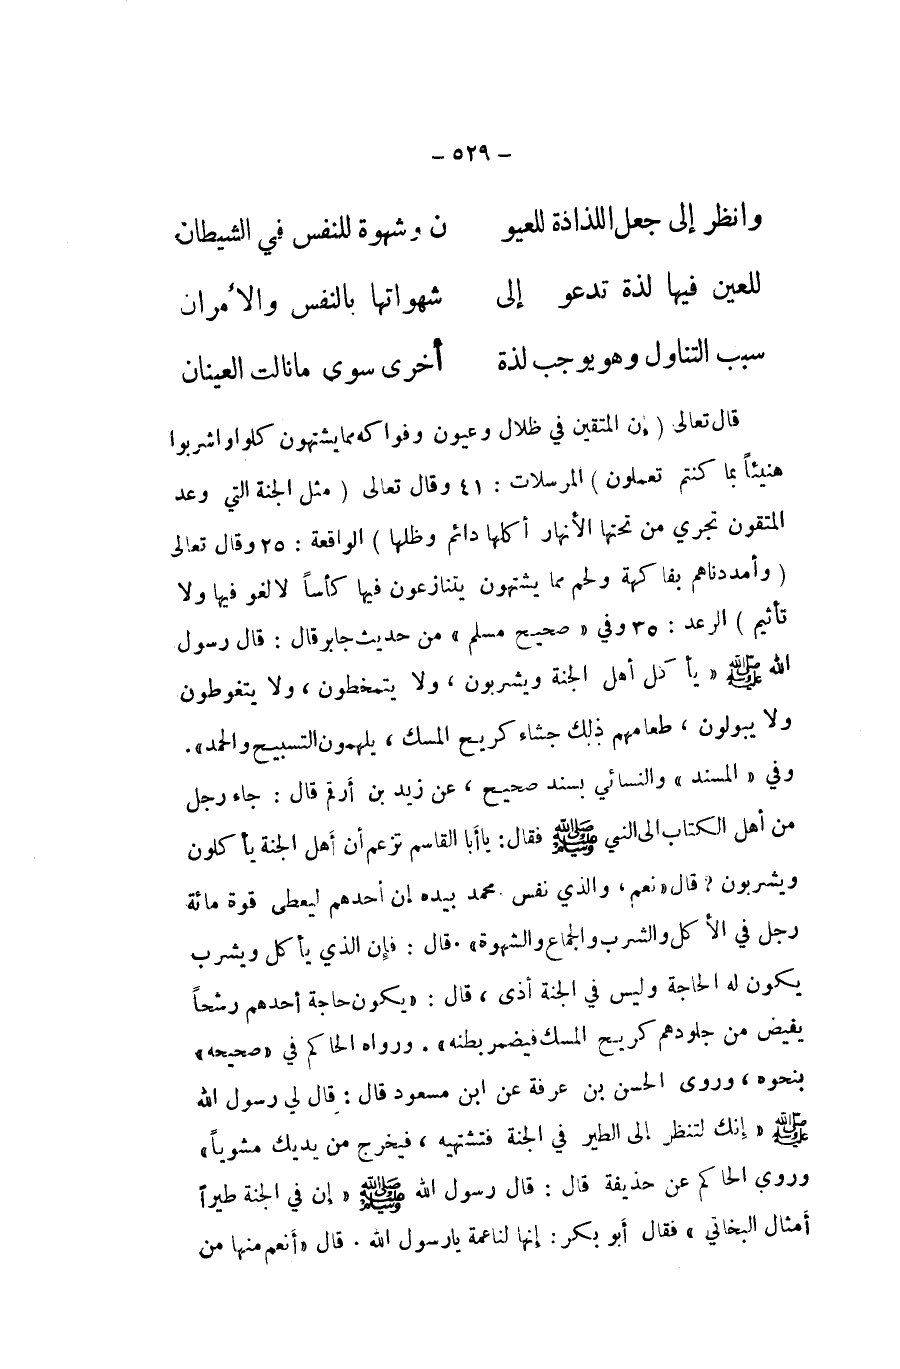 – ٥٢٩ –
وانظر إلى جعل اللذاذة للعيو ن وشهوة للنفس في الشيطان
للعين فيها لذة تدعو إلى شهواتها بالنفس والأمران
سبب التناول وهو يوجب لذة أخرى سوى مانالت العينان
قال تعالى ( إن المتقين في ظلال وعيون وفواكه مما يشتهون كلوا واشربوا
هنيئاً بما كنتم تعملون ) المرسلات : ٤١ وقال تعالى ( مثل الجنة التي وعد
المتقون تجري من تحتها الأنهار أكلها دائم وظلها ) الواقعة : ٢٥ وقال تعالى
( وأمددناهم بفاكهة ولحم مما يشتهون يتنازعون فيها كأساً لا لغو فيها ولا
تأثيم ) الرعد : ٣٥ وفي « صحيح مسلم » من حديث جابر قال : قال رسول
الله ﷺ « يأكل أهل الجنة ويشربون ، ولا يتمخطون ، ولا يتغوطون
ولا يبولون ، طعامهم ذلك جشاء كريح المسك ، يلهمون التسبيح والحمد» .
وفي « المسند » والنسائي بسند صحيح ، عن زيد بن أرقم قال : جاء رجل
من أهل الكتاب الى النبي ﷺ فقال : ياأبا القاسم تزعم أن أهل الجنة يأكلون
ويشربون ? قال « نعم ، والذي نفس محمد بيده إن أحدهم ليعطى قوة مائة
رجل في الأكل والشرب والجماع والشهوة» . قال : فإن الذي يأكل ويشرب
يكون له الحاجة وليس في الجنة أذى ، قال : «يكون حاجة أحدهم رشحاً
يفيض من جلودهم كريح المسك فيضمر بطنه» . ورواه الحاكم في «صحيحه»
بنحوه ، وروى الحسن بن عرفة عن ابن مسعود قال : قال لي رسول الله
ﷺ « إنك لتنظر إلى الطير في الجنة فتشتهيه ، فيخرج من يديك مشوياً »
وروي الحاكم عن حذيفة قال : قال رسول الله ﷺ « إن في الجنة طيراً
أمثال البخاتي » فقال أبو بكر : إنها لناعمة يارسول الله . قال «أنعم منها من